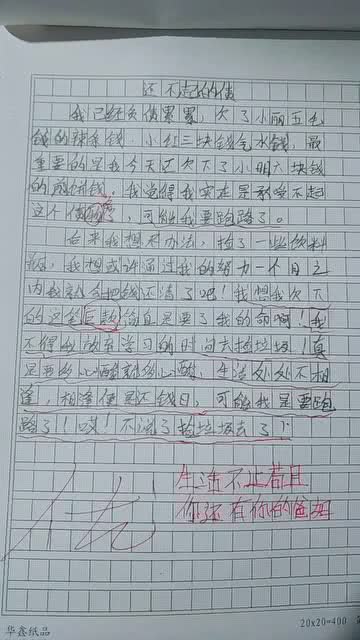 还不起的债
我已经负债累累，欠了小丽五毛
钱的辣条钱 小红三块钱汽水钱，最
重要的是我今天还欠下了小明六块钱
的煎饼钱，我觉得我实在是承受不起
这个债，可能我要跑路了。
后来我想想办法，捡了一些饮料
瓶，我想或许通过我的努力一个月之
内我就会把钱还清了吧！我想我欠下
的这笔巨款简直是要了我的命啊！我
不得我放弃学习的时间去捡垃圾！真
是要我心酸我的心酸，生活处处不相
逢，相逢便是还钱日，可能我是要跑
路了！哎！不说了捡垃圾去了！
优
生活不止苟且
你还有你的爸妈
华鑫纸品
20×20=400